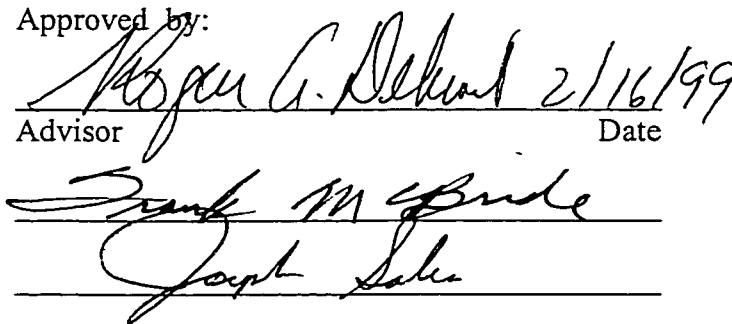 Approved by:
Roger A. 2/16/99
Advisor Date
Frank McBride
Joseph